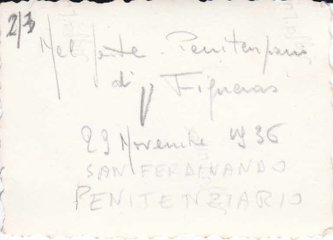 2/3
Nel forte Penitenziario
di Figueras
29 Novembre 1936
SAN FERDINANDO
PENITENZIARIO